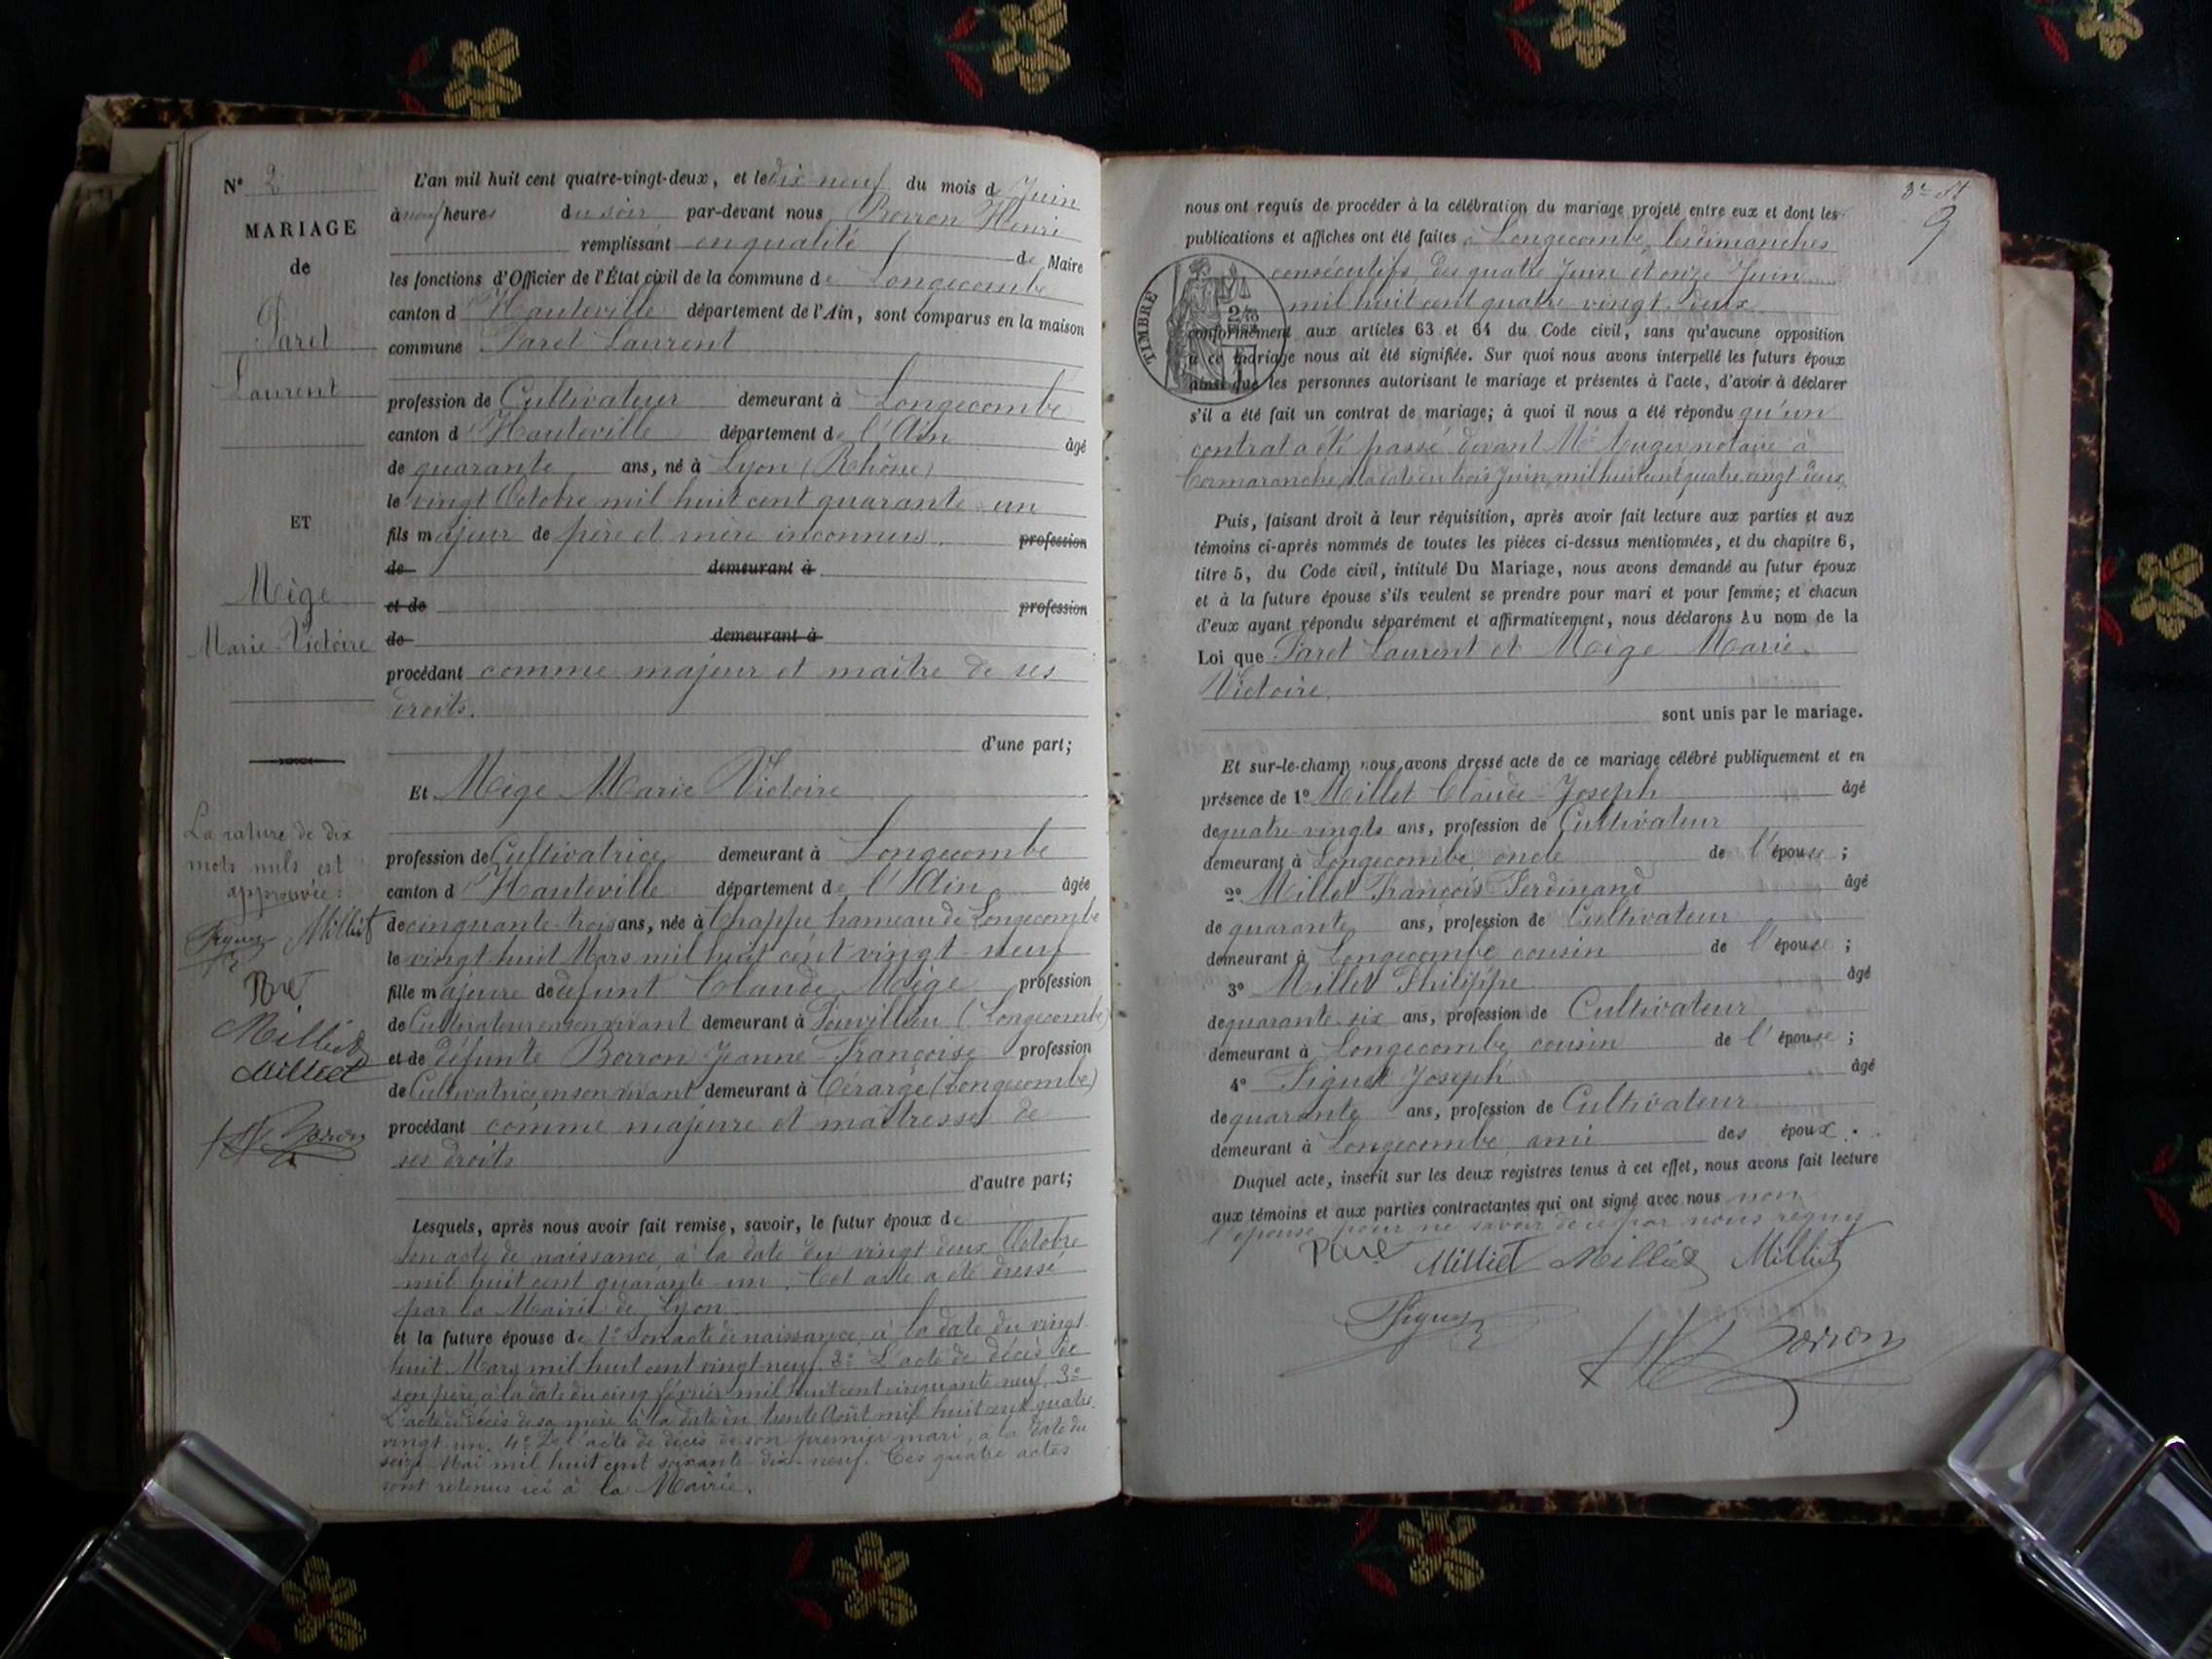 N° 2
MARIAGE
de
Paret
Laurent
ET
Mège
Marie-Victoire
La rature de dix
mots nuls est
approuvée:
Milliet
Paret
Milliet
Milliet
H Borron
L'an mil huit cent quatre-vingt-deux, et le dix neuf du mois de Juin
à neuf heures du soir par-devant nous Borron Henri
remplissant en qualité de Maire
les fonctions d'Officier de l'État civil de la commune de Longecombe
canton d'Hauteville département de l'Ain, sont comparus en la maison
commune Paret Laurent
profession de Cultivateur demeurant à Longecombe
canton d'Hauteville département de l'Ain âgé
de quarante ans, né à Lyon (Rhône)
le vingt Octobre mil huit cent quarante-un
fils majeur de père et mère inconnus. profession
de demeurant à
et de profession
de demeurant à
procédant comme majeur et maître de ses
droits.
d'une part;
Et Mège Marie Victoire
profession de Cultivatrice demeurant à Longecombe
canton d'Hauteville département de l'Ain âgée
de cinquante-trois ans, née à Chappe hameau de Longecombe
le vingt huit Mars mil huit cent vingt-neuf
fille majeure de défunt Claude Mège profession
de Cultivateur en son vivant demeurant à (Longecombe)
et de défunte Borron Jeanne-Françoise profession
de Cultivatrice, en son vivant demeurant à Cérarge (Longecombe)
procédant comme majeure et maîtresse de
ses droits
d'autre part;
Lesquels, après nous avoir fait remise, savoir, le futur époux de
son acte de naissance à la date du vingt deux Octobre
mil huit cent quarante un. Cet acte a été dressé
par la Mairie de Lyon
et la future épouse de 1° Son acte de naissance, à la date du vingt
huit Mars mil huit cent vingt-neuf. 2° L'acte de décès de
son père, à la date du cinq février mil huit cent cinquante neuf. 3°
L'acte de décès de sa mère à la date du trente Août mil huit cent quatre
vingt un. 4° De l'acte de décès de son premier mari, à la date du
seize Mai mil huit cent soixante-dix-neuf. Ces quatre actes
sont retenus ici à la Mairie.
9
nous ont requis de procéder à la célébration du mariage projeté entre eux et dont les
publications et affiches ont été faites à Longecombe, les dimanches
consécutifs, des quatre Juin et onze Juin
mil huit cent quatre-vingt-deux
TIMBRE
conformément aux articles 63 et 64 du Code civil, sans qu'aucune opposition
à ce mariage nous ait été signifiée. Sur quoi nous avons interpellé les futurs époux
ainsi que les personnes autorisant le mariage et présentes à l'acte, d'avoir à déclarer
s'il a été fait un contrat de mariage; à quoi il nous a été répondu qu'un
contrat a été passé devant Me notaire à
Cormaranche, à la date du trois Juin, mil huit cent quatre vingt deux
Puis, faisant droit à leur réquisition, après avoir fait lecture aux parties et aux
témoins ci-après nommés de toutes les pièces ci-dessus mentionnées, et du chapitre 6,
titre 5, du Code civil, intitulé Du Mariage, nous avons demandé au futur époux
et à la future épouse s'ils veulent se prendre pour mari et pour femme; et chacun
d'eux ayant répondu séparément et affirmativement, nous déclarons Au nom de la
Loi que Paret Laurent et Mège Marie
Victoire.
sont unis par le mariage.
Et sur-le-champ nous avons dressé acte de ce mariage célébré publiquement et en
présence de 1° Millet Claude-Joseph âgé
de quatre vingts ans, profession de Cultivateur
demeurant à Longecombe, oncle de l'épouse;
2° Millet François Ferdinand âgé
de quarante ans, profession de Cultivateur
demeurant à Longecombe cousin de l'épouse;
3° Millet Philippe âgé
de quarante six ans, profession de Cultivateur
demeurant à Longecombe, cousin de l'épouse;
4° Piguet Joseph âgé
de quarante ans, profession de Cultivateur
demeurant à Longecombe, ami des époux.
Duquel acte, inscrit sur les deux registres tenus à cet effet, nous avons fait lecture
aux témoins et aux parties contractantes qui ont signé avec nous non
l'épouse pour ne savoir de ce par nous requis
Paret Milliet Milliet Milliet
Piguet
H Borron